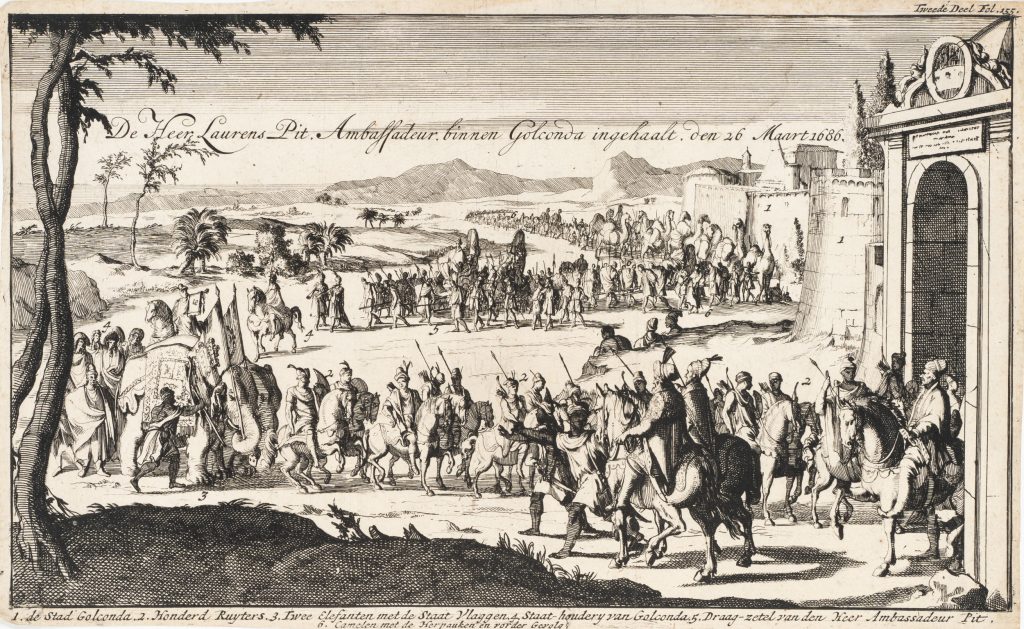 Tweede Deel Fol. 155.
De Heer Laurens Pit, Ambassadeur, binnen Golconda ingehaalt, den 26 Maart 1686.
1
1
2
2
3
4
5
6
1. de Stad Golconda. 2. Honderd Ruyters. 3. Twee Elefanten met de Staat Vlaggen. 4. Staat-houdery van Golconda. 5. Draag-zetel van den Heer Ambassadeur Pit.
6. Camelen met de Herpauken en vorder Gevolg